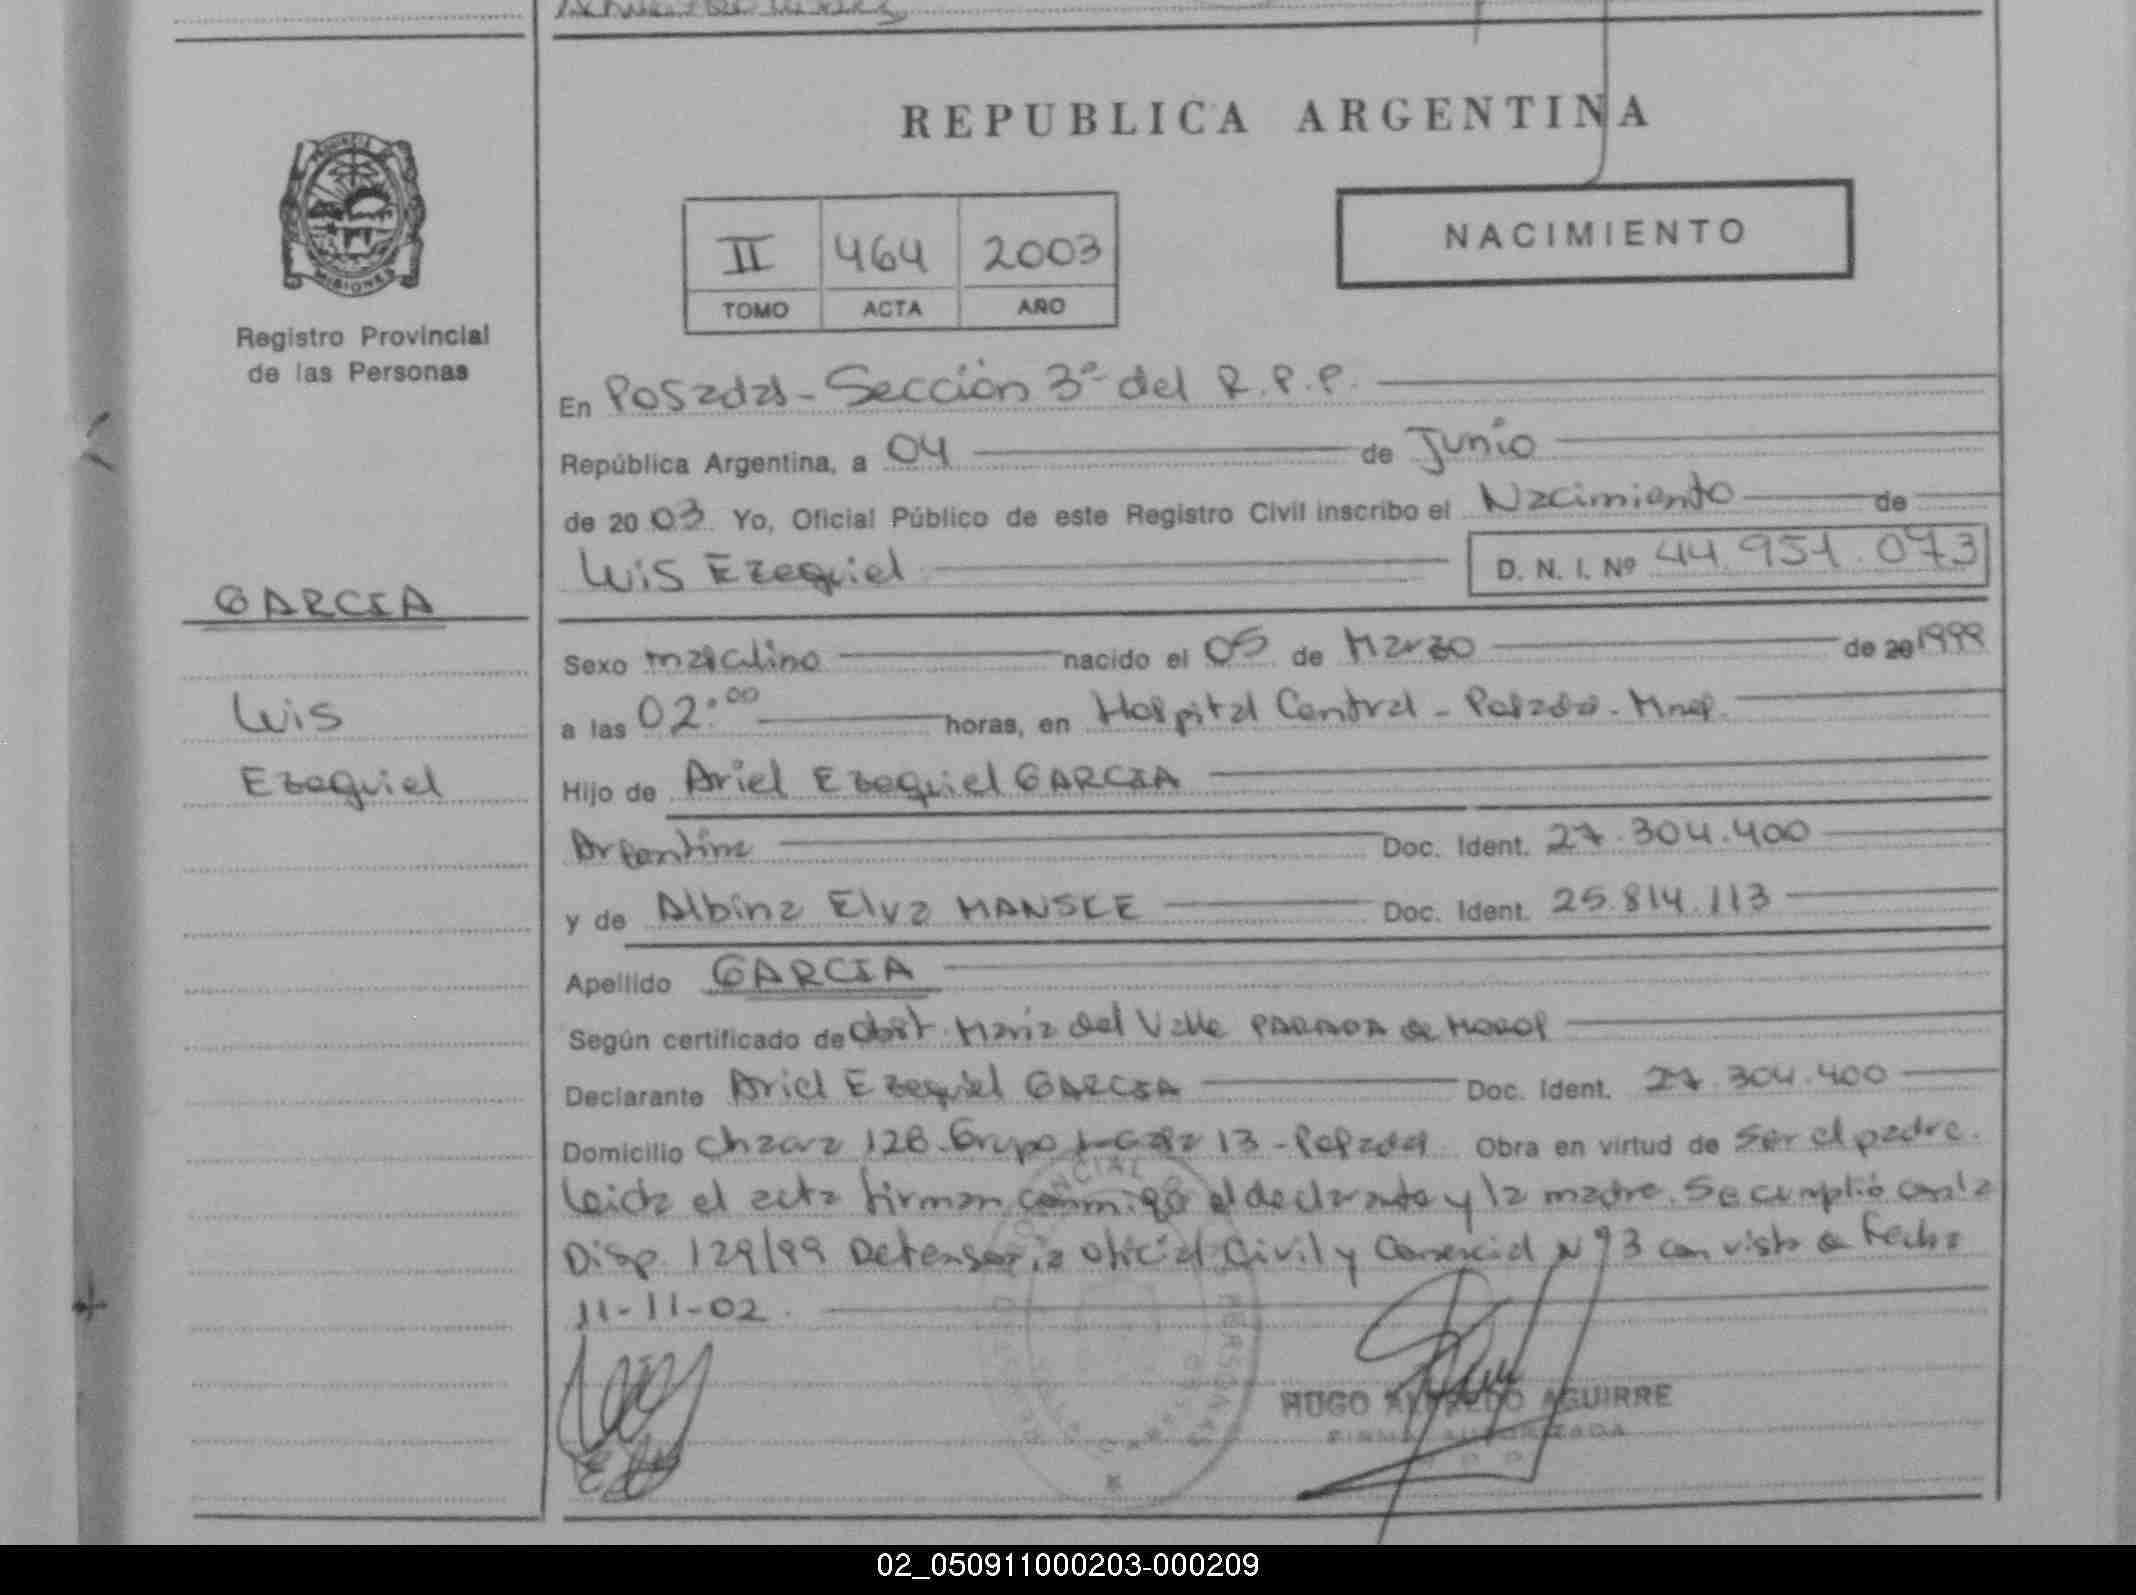 REPUBLICA ARGENTINA
PROVINCIA DE
MISIONES
II 464 2003
TOMO ACTA AÑO
NACIMIENTO
Registro Provincial
de las Personas
En Posadas - Sección 3ª del R.P.P.
República Argentina, a 04 de Junio
de 2003 Yo, Oficial Público de este Registro Civil inscribo el Nacimiento de
Luis Ezequiel D. N. I. Nº 44.951.073
GARCIA
Luis
Ezequiel
Sexo masculino nacido el 05 de Marzo de 20 1999
a las 02:00 horas, en Hospital Central - Posadas - Mnes.
Hijo de Ariel Ezequiel GARCIA
Argentina Doc. Ident. 27.304.400
y de Albina Elva MANSKE Doc. Ident. 25.814.113
Apellido GARCIA
Según certificado de Obst. Maria del Valle PARADA de
Declarante Ariel Ezequiel GARCIA Doc. Ident. 27.304.400
Domicilio Chacra 128 - Grupo 1 - Casa 13 - Posadas. Obra en virtud de ser el padre.
Leida el acta firman conmigo el declarante y la madre. Se cumplió con la
Disp. 129/99 Defensoria Oficial Civil y Comercial Nº 3 con vista de fecha
11-11-02.
HUGO ALFREDO AGUIRRE
FIRMA AUTORIZADA
02_050911000203-000209